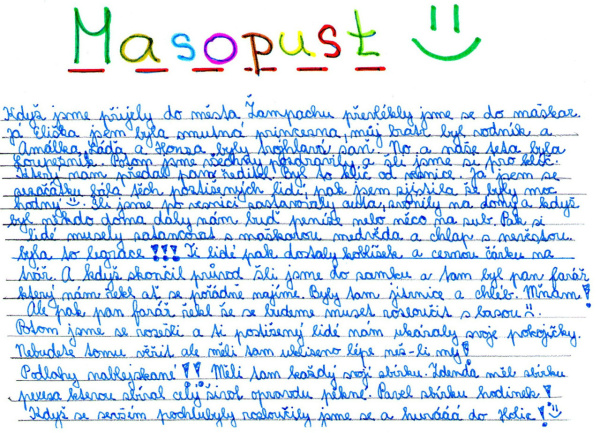 Masopust
Když jsme přijely do města Žampachu převlékly jsme se do maškar.
Já Eliška jsem byla smutná princezna, můj bratr byl vodník a
Amálka, Láďa a Honza byly trojhlavá saň. No a naše teta byla
loupežník. Potom jsme všechny pozdravily, a šli jsme se pro klíč
který nám předal pan ředitel. Byl to klíč od vesnice. Já jsem se
ze začátku bála těch postižených lidí, pak jsem zjistila že byly moc
hodný. Šli jsme po vesnici zastavovaly auta, zvonily na domy a když
byl někdo doma daly nám buď peníze nebo něco na zub. Pak si
lidé musely zatancovat s maškarou medvěda a chlap s nevěstou.
byla to legrace!!! Ti lidé pak dostaly koblížek a černou čárku na
tvář. A když skončil průvod šli jsme do zámku a tam byl pan farář
který nám řekl ať se pořádně najíme. Byly tam jitrnice a chléb. Mňam!
Ale pak pan farář řekl že se budeme muset rozloučit s basou.
Potom jsme se rozešli a ti postižený lidé nám ukázaly svoje pokojíčky.
Nebudete tomu věřit ale měli tam uklizeno lépe než-li my!
Podlahy nablejskané!! Měli tam každý svojí sbírku. Zdenda měl sbírku
piva kterou sbíral celý život opravdu pěkné. Pavel sbírku hodinek!
Když se setměním pochlubyly rozloučily jsme se a hurááá do Holic!